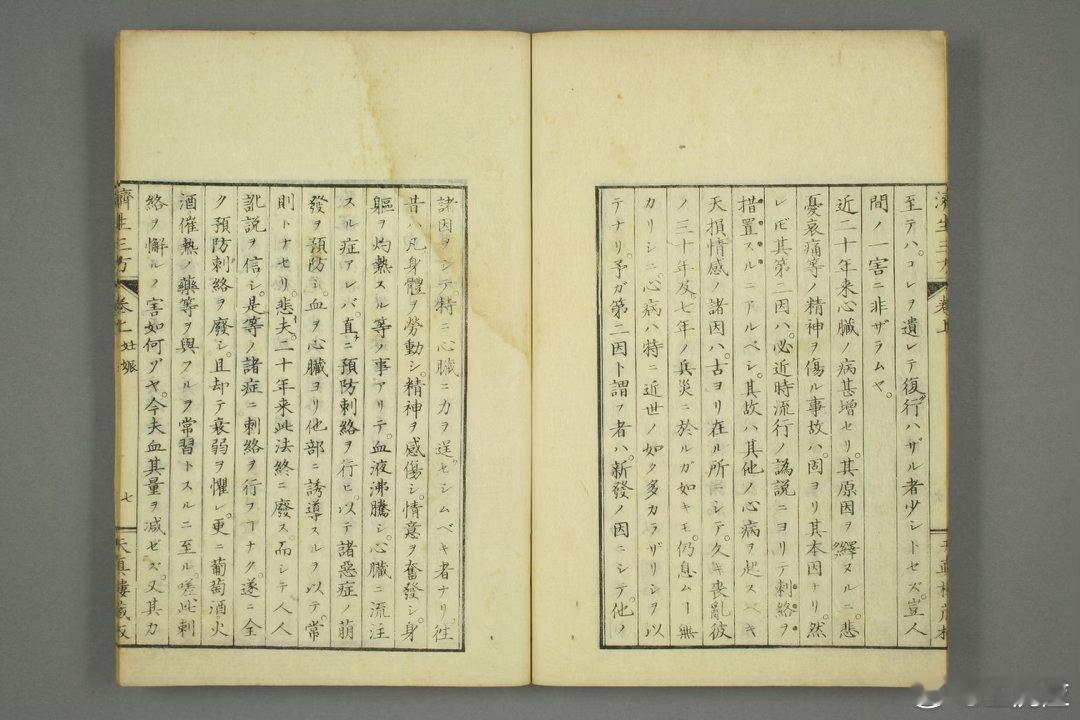 至テハ。コレヲ遺レテ復行ハザル者少シトセズ。豈人
間ノ一害ニ非ザラムヤ。
近二十年来心臓ノ病甚増セリ。其原因ヲ繹ヌルニ。悲
憂哀痛等ノ精神ヲ傷ル事故ハ。固ヨリ其本因ナリ。然
レ𪜈其第二因ハ。必近時流行ノ譌説ニヨリテ刺絡ヲ
措置スルニアルベシ。其故ハ其他ノ心病ヲ起スベキ
天損情感ノ諸因ハ。古ヨリ在ル所ニシテ。久キ喪亂彼
ノ三十年及七年ノ兵災ニ於ルガ如キモ。仍息ムヿ無
カリシニ。心病ハ特ニ近世ノ如ク多カラザリシヲ以
テナリ。予ガ第二因ト謂フ者ハ。新發ノ因ニシテ。他ノ
諸因ヲシテ。特ニ心臓ニカヲ逞セシムベキ者ナリ。往
昔ハ凡身體ヲ勞動シ。精神ヲ感傷シ。情意ヲ奮發シ。身
軀ヲ灼熱スル等ノ事アリテ。血液沸騰シ。心臓ニ流注
スル症アレバ。直ニ預防刺絡ヲ行ヒ。以テ諸惡症ノ萠
發ヲ預防シ。血ヲ心臓ヨリ他部ニ誘導スルヲ以テ。常
則トナセリ。悲夫。二十年来此法終ニ廢ス。而シテ人人
訛説ヲ信シ。是等ノ諸症ニ刺絡ヲ行フヿナク。遂ニ全
ク預防刺絡ヲ廢シ。且却テ衰弱ヲ懼レ。更ニ葡萄酒火
酒催熱ノ藥等ヲ與フルヲ常習トスルニ至ル。嗟此刺
絡ヲ懈ルノ害如何ゾヤ。今夫血其量ヲ减ゼズ。又其力
濟生三方 卷上 妊娠 七 天真樓藏版